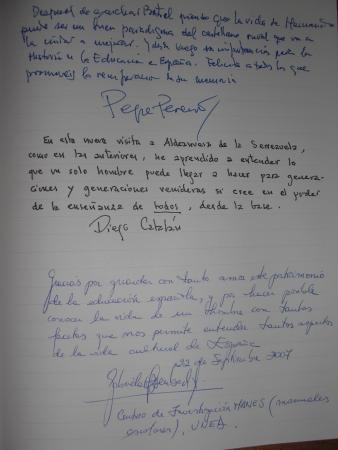 Después de escuchar pienso que la vida de
puede ser un buen paradigma del castellano rural que va a
la ciudad a mejorar. Y desde luego su importancia para la
Historia de la Educación en España. Felicito a todos los que
promovéis la recuperación de su memoria
Pepe
En esta nueva visita a Aldeanueva de la Serrezuela,
como en las anteriores, he aprendido a entender lo
que un solo hombre puede llegar a hacer para genera-
ciones y generaciones venideras si cree en el poder
de la enseñanza de todos, desde la base.
Diego Catalán
Gracias por guardar con tanto amor este patrimonio
de la educación española, y por hacer posible
conocer la vida de un hombre con tantas
facetas que nos permite entender tantos aspectos
de la vida cultural de España
22 de Septiembre 2007
Gabriela Ossenbach
Centro de Investigación MANES (manuales
escolares), UNED.